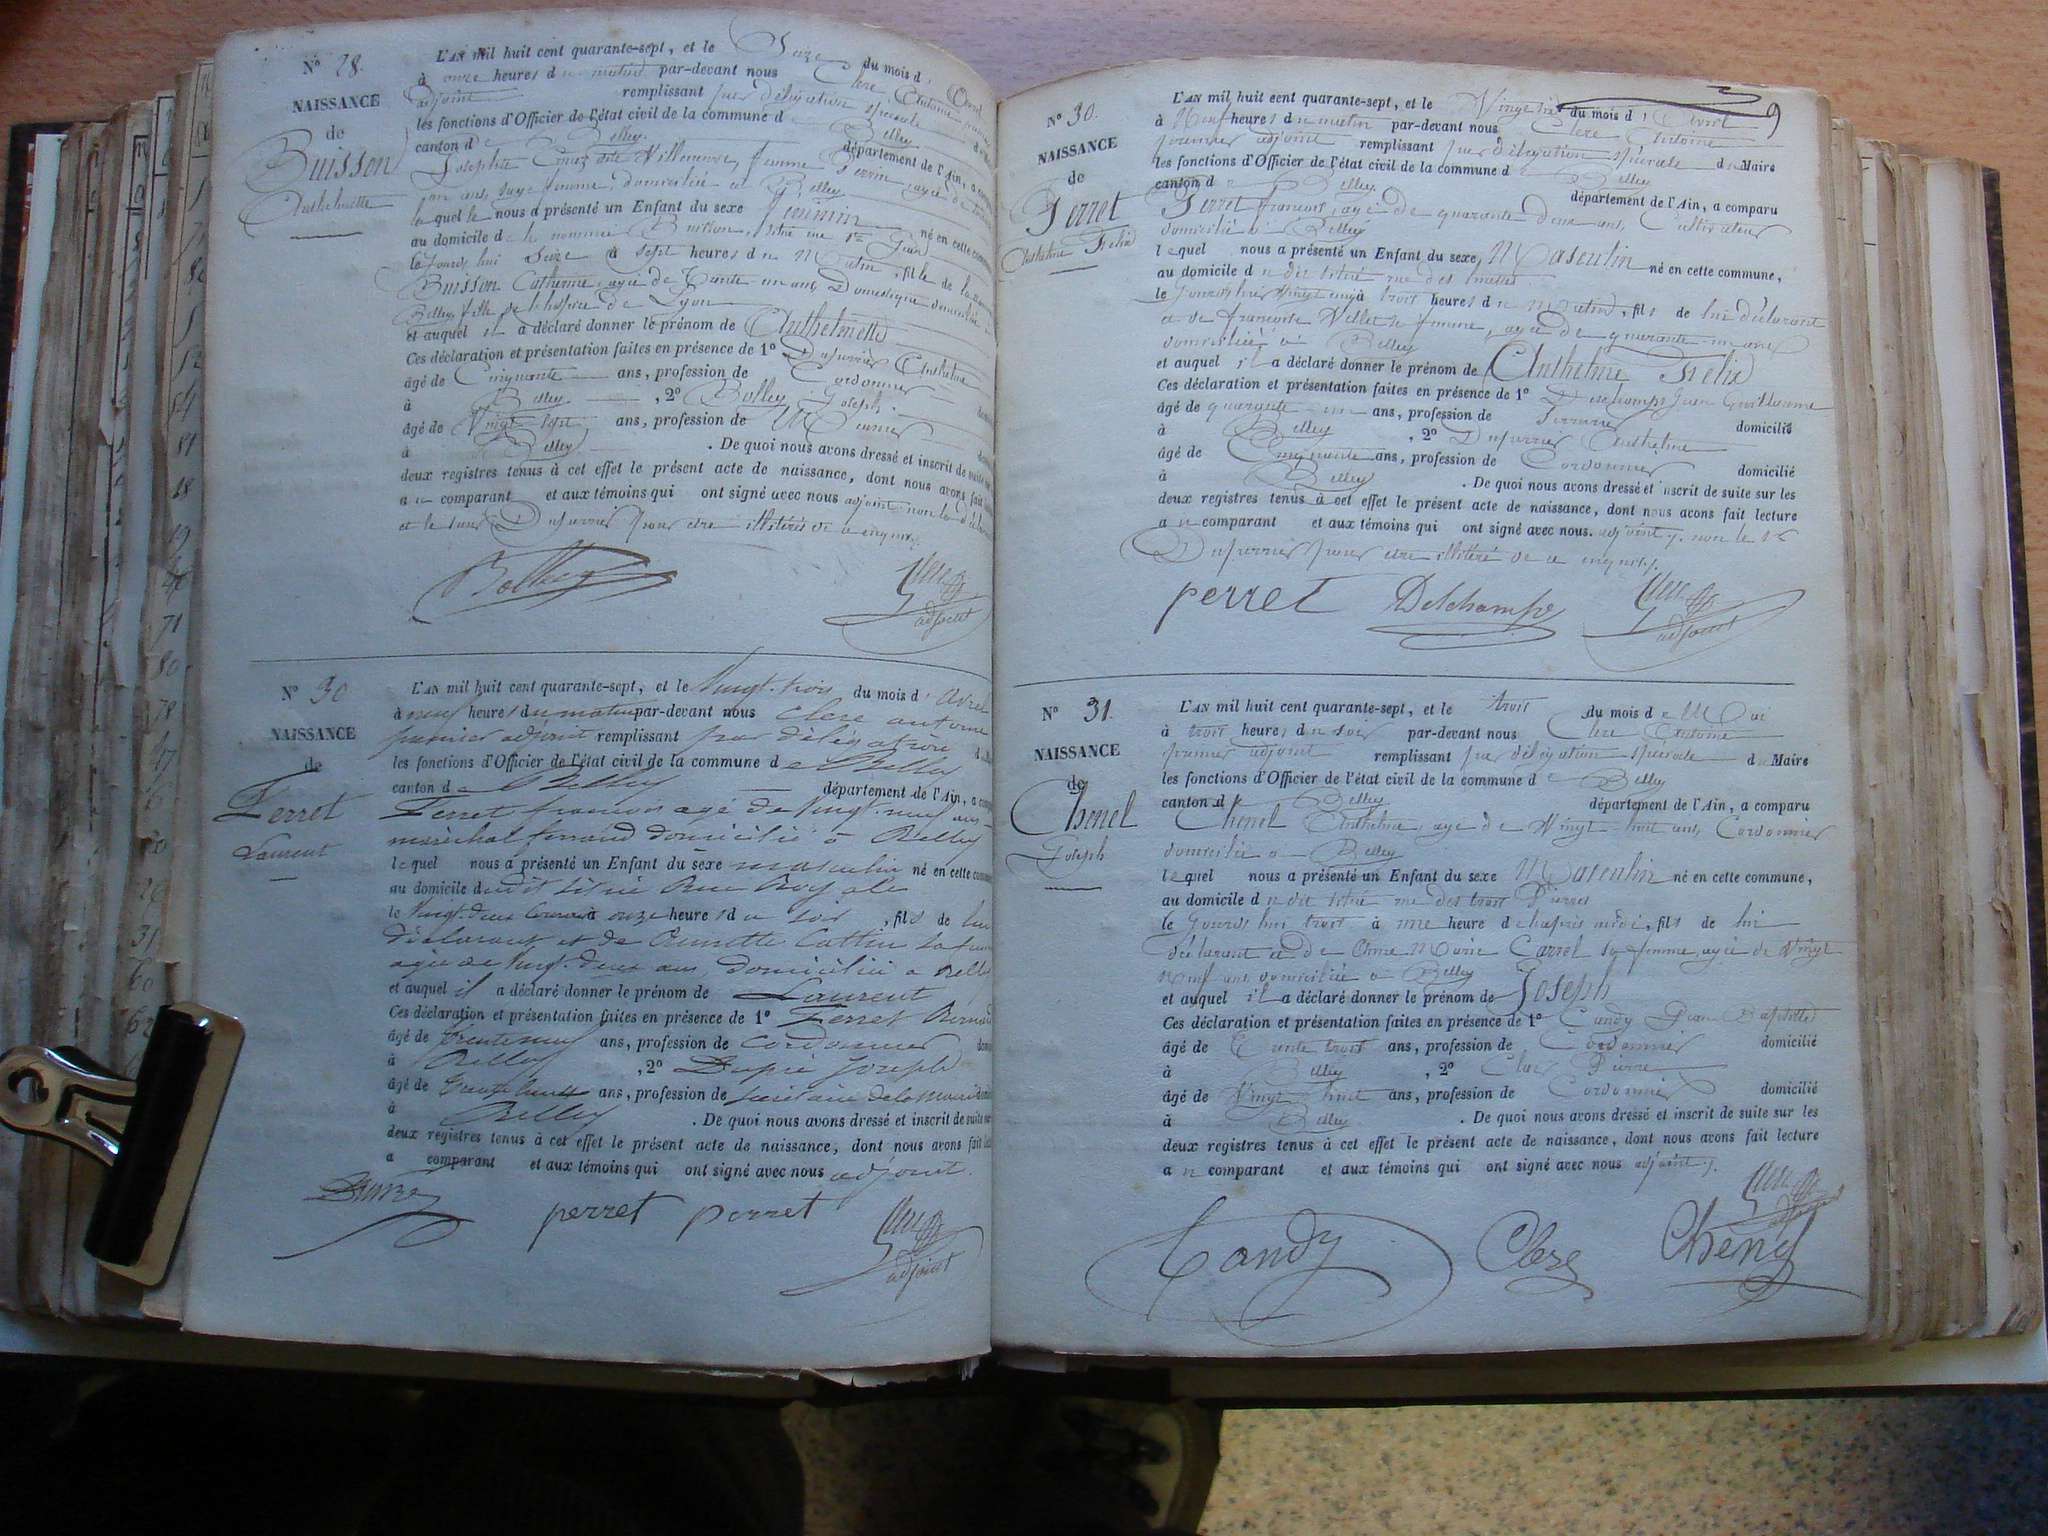 N° 28.
NAISSANCE
de
Buisson
Anthelmette
L'AN mil huit cent quarante-sept, et le Seize du mois d'Avril
à onze heures du matin par-devant nous Clerc Antoine premier
adjoint remplissant par délégation spéciale
les fonctions d'Officier de l'état civil de la commune de Belley
canton de Belley département de l'Ain, a comparu
Josephte Villeneuve, femme Perrin agée de
un ans, sage femme, domiciliée à Belley
laquelle nous a présenté un Enfant du sexe féminin né en cette commune
au domicile de la nommée Buisson, situé rue
le jourd'hui Seize à sept heures du Matin, fille de la
Buisson Catherine, agée de Trente un ans, Domestique domiciliée à
Belley, fille de l'hospice de Lyon
et auquel il a déclaré donner le prénom de Anthelmette
Ces déclaration et présentation faites en présence de 1° Dufurrier Anthelme
âgé de Cinquante ans, profession de Cordonnier
à Belley, 2° Bolley Joseph
âgé de Vingt sept ans, profession de
à Belley. De quoi nous avons dressé et inscrit de suite sur
deux registres tenus à cet effet le présent acte de naissance, dont nous avons fait
au comparant et aux témoins qui ont signé avec nous adjoint, non la
et le sieur Dufurrier pour être illitérés de ce enquis.
Bolley
Clerc
adjoint
N° 30
NAISSANCE
de
Perret
Laurent
L'AN mil huit cent quarante-sept, et le vingt-trois du mois d'Avril
à neuf heures du matin par-devant nous Clerc antoine
premier adjoint remplissant par délégation
les fonctions d'Officier de l'état civil de la commune de Belley
canton de Belley département de l'Ain, a
Perret francois agé de vingt-neuf ans
maréchal ferrand domicilié à Belley
lequel nous a présenté un Enfant du sexe masculin né en cette
au domicile dudit situé Rue Royale
le vingt-deux Courant à onze heures du soir, fils de lui
déclarant et de Cattin sa
agée de vingt-deux ans, domiciliée a Belley
et auquel il a déclaré donner le prénom de Laurent
Ces déclaration et présentation faites en présence de 1° Perret
âgé de trente neuf ans, profession de cordonnier
à Belley, 2° Dupré Joseph
âgé de ans, profession de secrétaire de la mairie
à Belley. De quoi nous avons dressé et inscrit de suite sur
deux registres tenus à cet effet le présent acte de naissance, dont nous avons fait
a comparant et aux témoins qui ont signé avec nous adjoint.
perret perret
Clerc
adjoint
9
N° 30.
NAISSANCE
de
Perret
Anthelme Félix
L'AN mil huit cent quarante-sept, et le Vingt six du mois d'Avril
à Neuf heures du matin par-devant nous Clerc Antoine
premier adjoint remplissant par délégation spéciale du Maire
les fonctions d'Officier de l'état civil de la commune de Belley
canton de Belley département de l'Ain, a comparu
Perret francois, agé de quarante deux ans, Cultivateur
domicilié à Belley
lequel nous a présenté un Enfant du sexe Masculin né en cette commune,
au domicile du dit situé rue des
le jourd'hui vingt six à trois heures du matin, fils de lui déclarant
et de francoise Villet sa femme, agée de quarante un ans
domiciliée à Belley
et auquel il a déclaré donner le prénom de Anthelme Félix
Ces déclaration et présentation faites en présence de 1° Deschamps Jean Guillaume
âgé de quarante un ans, profession de Serrurier domicilié
à Belley, 2° Dufurrier Anthelme
âgé de Cinquante ans, profession de Cordonnier domicilié
à Belley. De quoi nous avons dressé et inscrit de suite sur les
deux registres tenus à cet effet le présent acte de naissance, dont nous avons fait lecture
au comparant et aux témoins qui ont signé avec nous. adjoint, non le
Dufurrier pour être illitéré de ce enquis.
perret Deschamps
Clerc
adjoint
N° 31.
NAISSANCE
de
Chenel
Joseph
L'AN mil huit cent quarante-sept, et le trois du mois de Mai
à trois heures du soir par-devant nous Clerc Antoine
premier adjoint remplissant par délégation spéciale du Maire
les fonctions d'Officier de l'état civil de la commune de Belley
canton de Belley département de l'Ain, a comparu
Chenel Anthelme, agé de Vingt huit ans, Cordonnier
domicilié à Belley
lequel nous a présenté un Enfant du sexe Masculin né en cette commune,
au domicile du dit situé rue des trois Pierres
le jourd'hui trois à une heure de l'après midi, fils de lui
déclarant et de Anne Marie Carrel sa femme, agée de Vingt
neuf ans, domiciliée à Belley
et auquel il a déclaré donner le prénom de Joseph
Ces déclaration et présentation faites en présence de 1° Candy Jean Baptiste
âgé de Trente trois ans, profession de Cordonnier domicilié
à Belley, 2° Clerc Pierre
âgé de Vingt huit ans, profession de Cordonnier domicilié
à Belley. De quoi nous avons dressé et inscrit de suite sur les
deux registres tenus à cet effet le présent acte de naissance, dont nous avons fait lecture
au comparant et aux témoins qui ont signé avec nous adjoint.
Clerc
adjoint
Candy Clerc Chenel